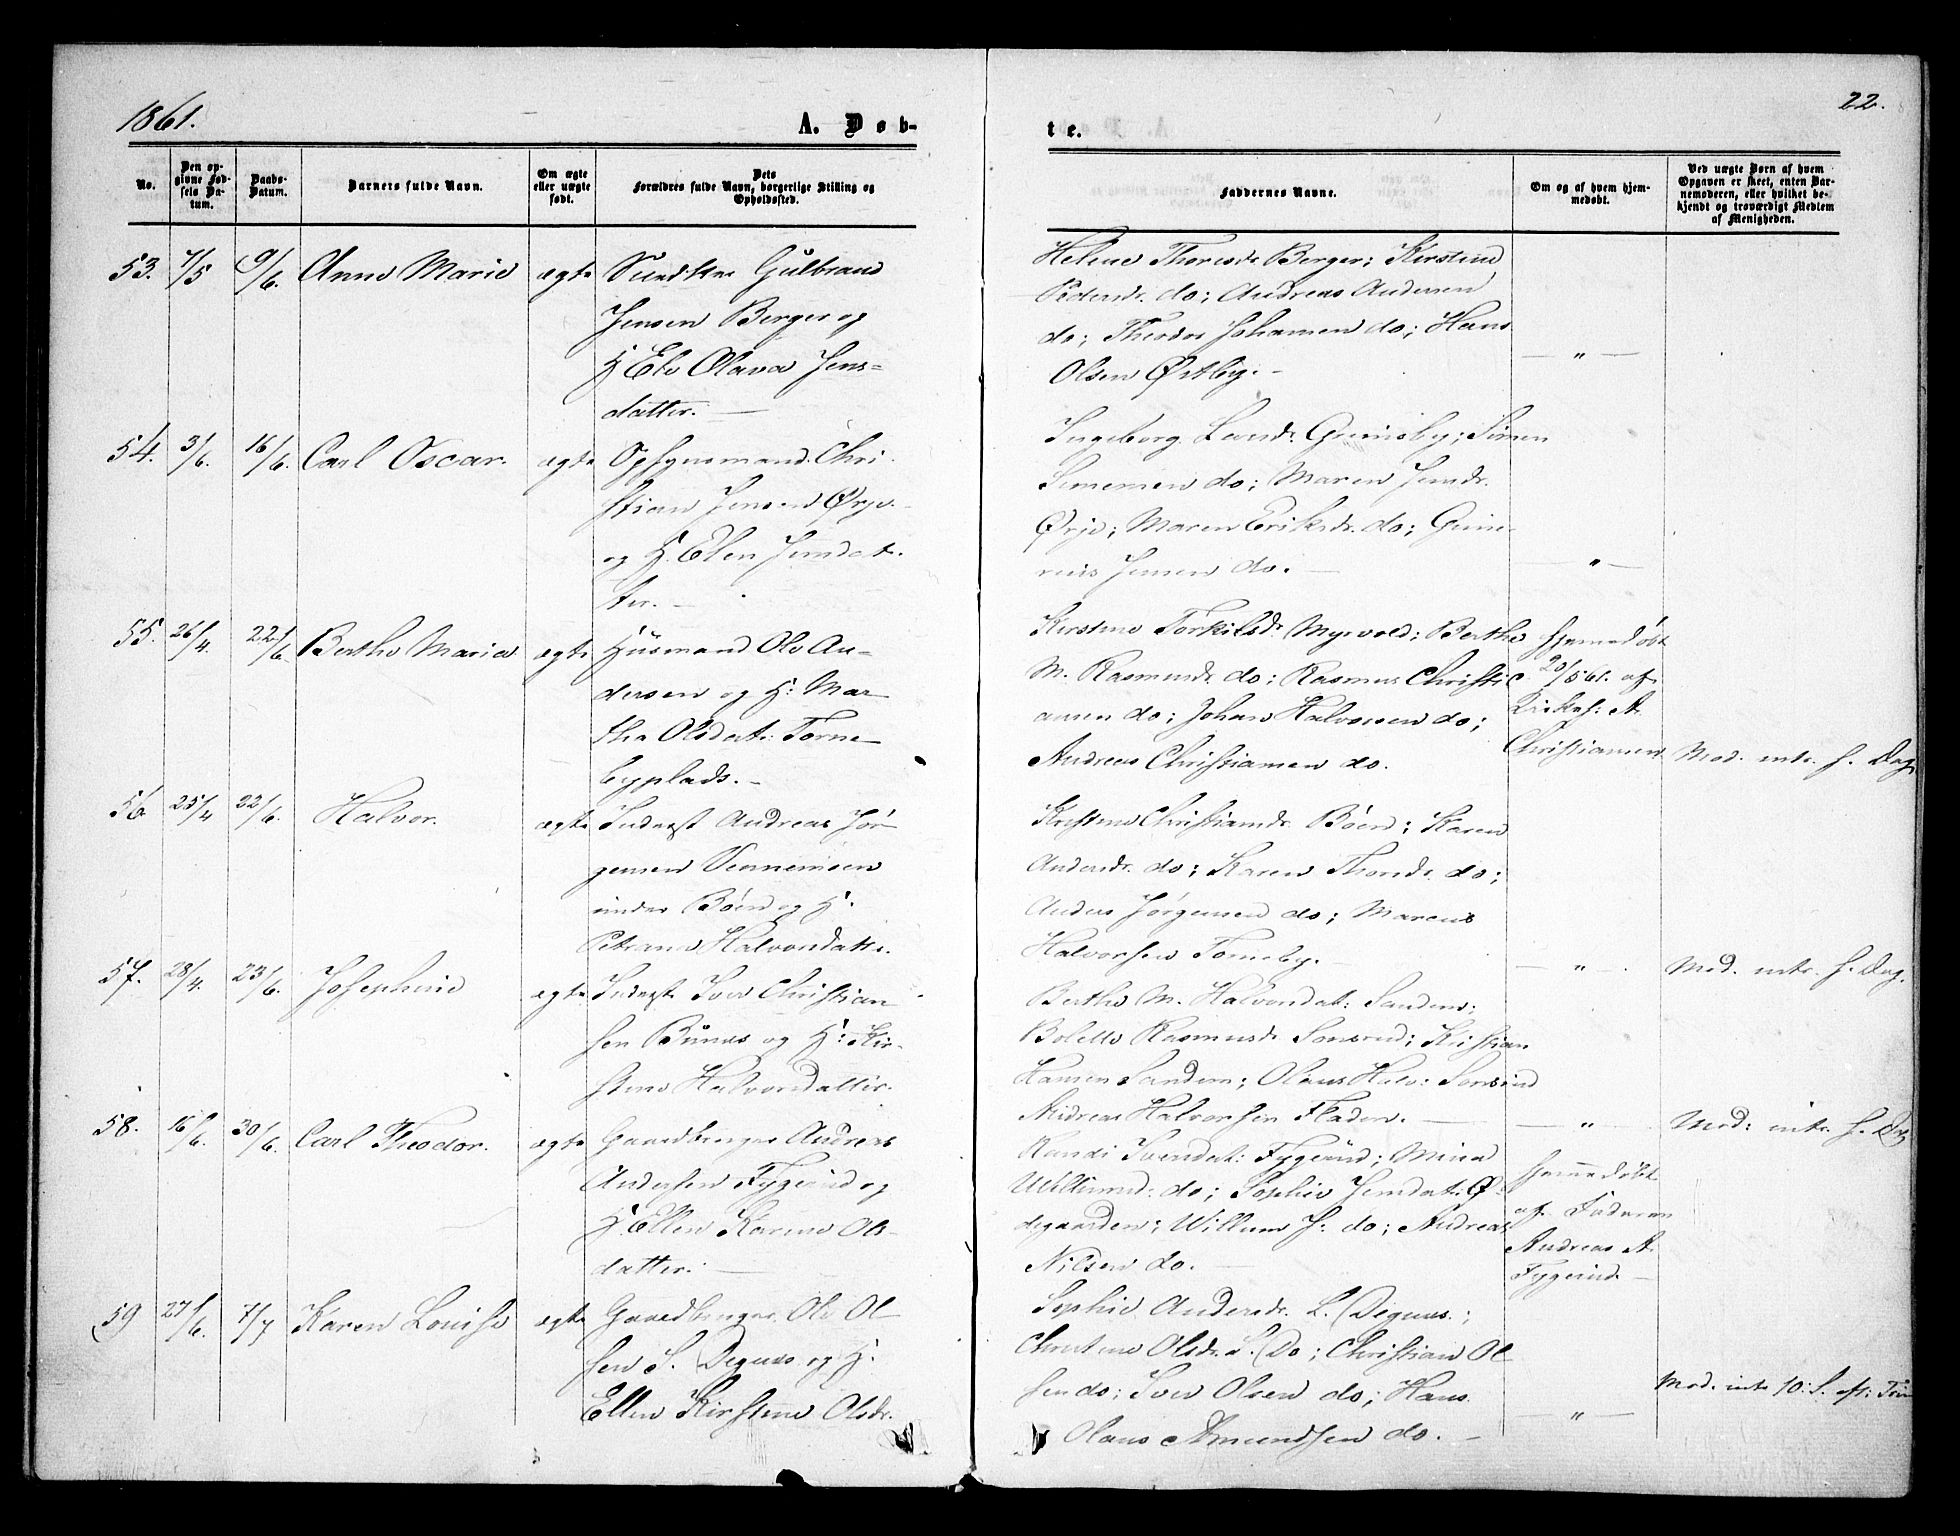 1861.
A. Døb-
te.
22.
No.
Den op-
givne Fød-
sels Da-
tum.
Daabs-
Datum.
Barnets fulde Navn.
Om ægte
eller uægte
født.
Dets
Forældres fulde Navn, borgerlige Stilling og
Opholdssted.
Faddernes Navne.
Om og af hvem hjem-
medøbt.
Ved uægte Børn af hvem
Opgaven er skeet, enten Bar-
nemoderen, eller hvilket be-
kjendt og troværdigt Medlem
af Menigheden.
53. 7/5 9/6. Anne Marie ægte Gulbrand
Jensen Berger og
H. Ele Olava Jens-
datter. —
Helene Berger; Kirstine
Pedersdr. do; Andreas Andersen
do; Theodor Johansen do; Hans
Olsen Østby. -
— " —
54. 3/6. 16/6. Carl Oscar. ægte Opsynsmand Chri-
stian Jensen Ørje
og H. Elen Jensdat-
ter. —
Ingeborg Grimsby; Simen
Simensen do; Maren Jensdr.
Ørje; Maren Eriksdr. do; Gune-
rius Jensen do. —
— " —
55. 26/4. 22/6. Berthe Maria ægte Husmand Ole An-
dersen og H: Mar-
the Olsdat: Torne-
byplads. -
Kirstine Torkilsdr. Myrvold; Berthe
M. Rasmusdr. do; Rasmus Christi-
ansen do; Johan Halvorsen do;
Andreas Christiansen do.
Hjemmedøbt
20/5 61. af
Kirkes: A.
Christiansen
Mod. intr. s. Dag
56. 25/4 22/6. Halvor. ægte Inderst Andreas Jør-
gensen
under Böen og H.
Petrane Halvorsdatter.
Kristine Christiansdr. Böen; Karen
Andersdr. do; Karen Thorsdr. do;
Anders Jørgensen do; Marcus
Halvorsen Torneby. —
— " — .
Mod. intr. s. Dag.
57. 28/4. 23/6. Josephine ægte Inderst Iver Christian-
sen Bunes og H: Kir-
stine Halvorsdatter.
Berthe M. Halvorsdat: Sandem;
Bolette Rasmusdr. Sonsrud; Kristian
Hansen Sandem; Olaus Halv: Sonsrud
Andreas Halvorsen Fladen. —
— " —
Mod: intr. s. Dag
58. 16/6. 30/6. Carl Theodor. ægte Gaardbruger Andreas
Andersen Tygerud og
H. Ellen Karine Ols-
datter. —
Randi Svensdat: Tygerud; Mina
Willumsd. do; Sophie Jensdat. Ø-
degaarden; Willum J: do; Andreas
Nilsen do. —
Hjemmedøbt
af Faderen
Andreas A.
Tygerud. —
59 27/6. 7/7 Karen Louise ægte Gaardbruger Ole Ol-
sen S. Degnes og H.
Ellen Kirstine Olsdr.
Sophie Andersdr. L. Degnes.;
Christine Olsdr. S. Do; Christian Ol-
sen do; Iver Olsen do; Hans
Olaus Amundsen do. —
— " —
Mod. intr. 10. S. eft: Trin